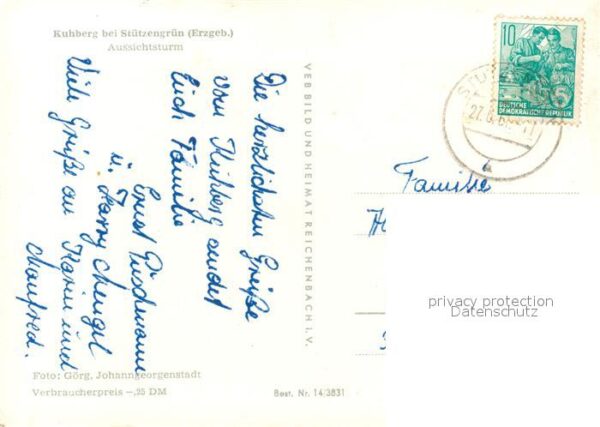 Kuhberg bei Stützengrün (Erzgeb.)
Aussichtsturm
Die herzlichsten Grüße
vom Kuhberg sendet
Euch Familie
Ernst Puschmann
u. Harry Mengel
Viele Grüße an Karin und
Manfred.
VEB BILD UND HEIMAT REICHENBACH I. V.
10
DEUTSCHE
DEMOKRATISCHE REPUBLIK
Familie
privacy protection
Datenschutz
Foto: Görg, Johanngeorgenstadt
Verbraucherpreis –,25 DM
Best. Nr. 14/3831